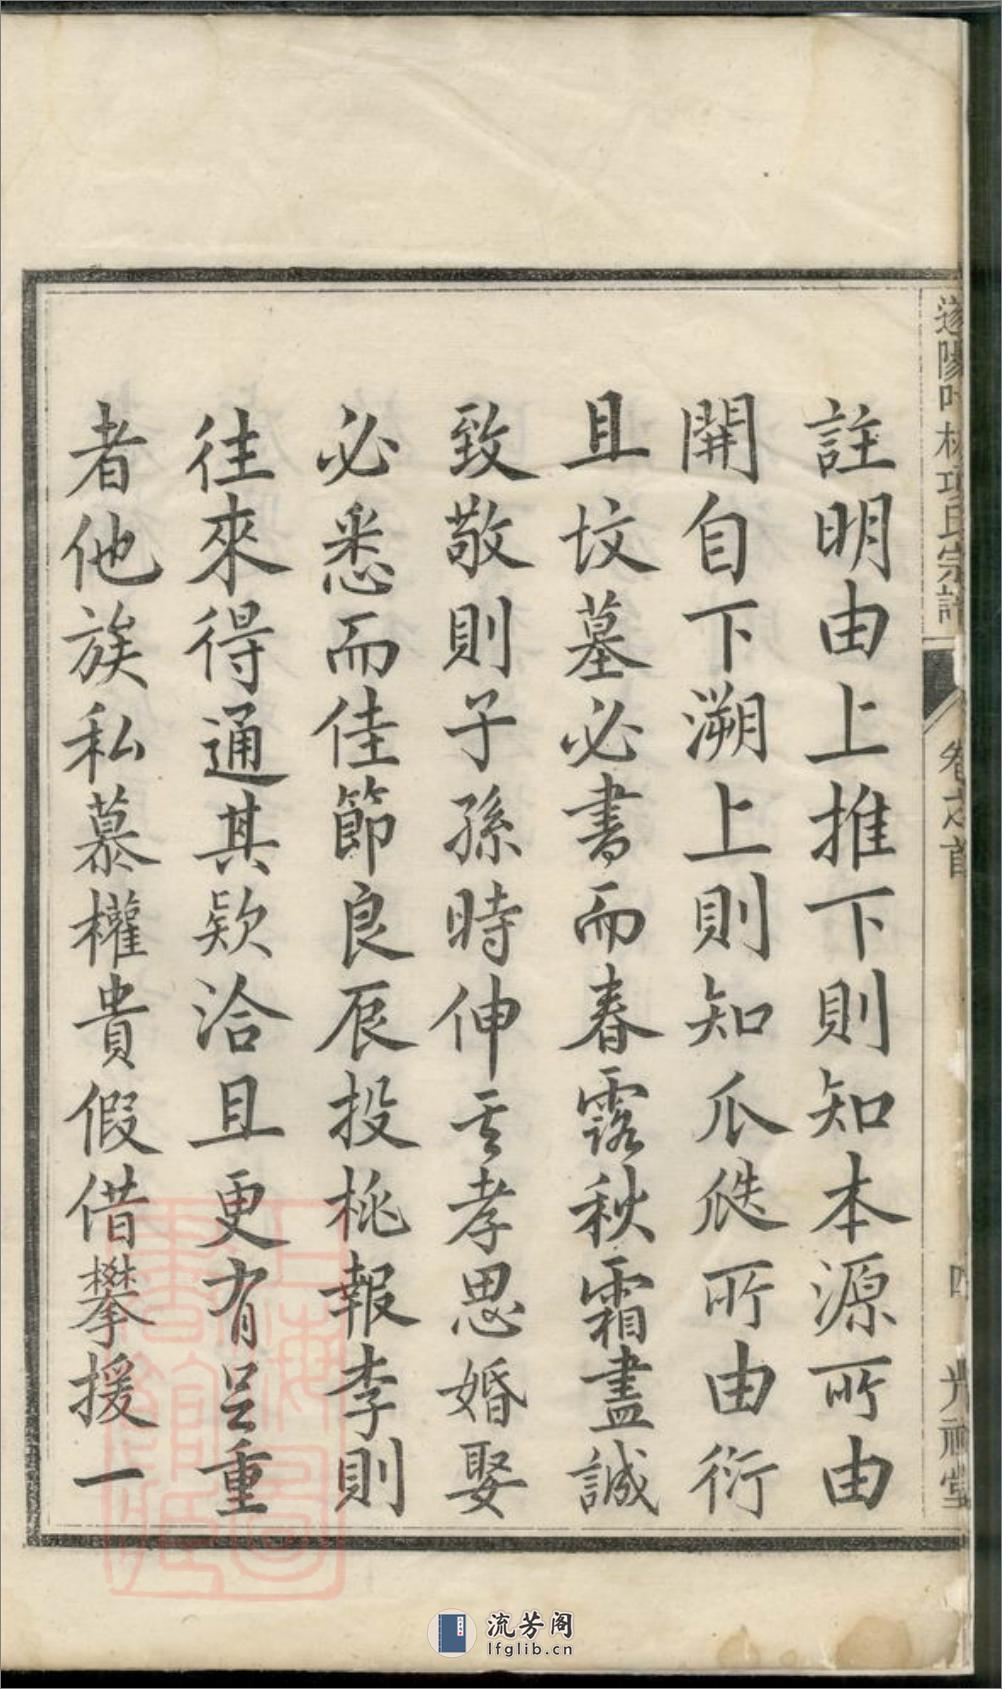 註明由上推下則知本源所由
開自下溯上則知瓜瓞所由衍
且坟墓必書而春露秋霜盡誠
致敬則子孫時伸其孝思婚娶
必悉而佳節良辰投桃報李則
往來得通其欵洽且更有足重
者他族私慕權貴假借攀援一
氏宗譜
卷之首
四
堂
上海圖書館藏
流芳阁
lfglib.cn